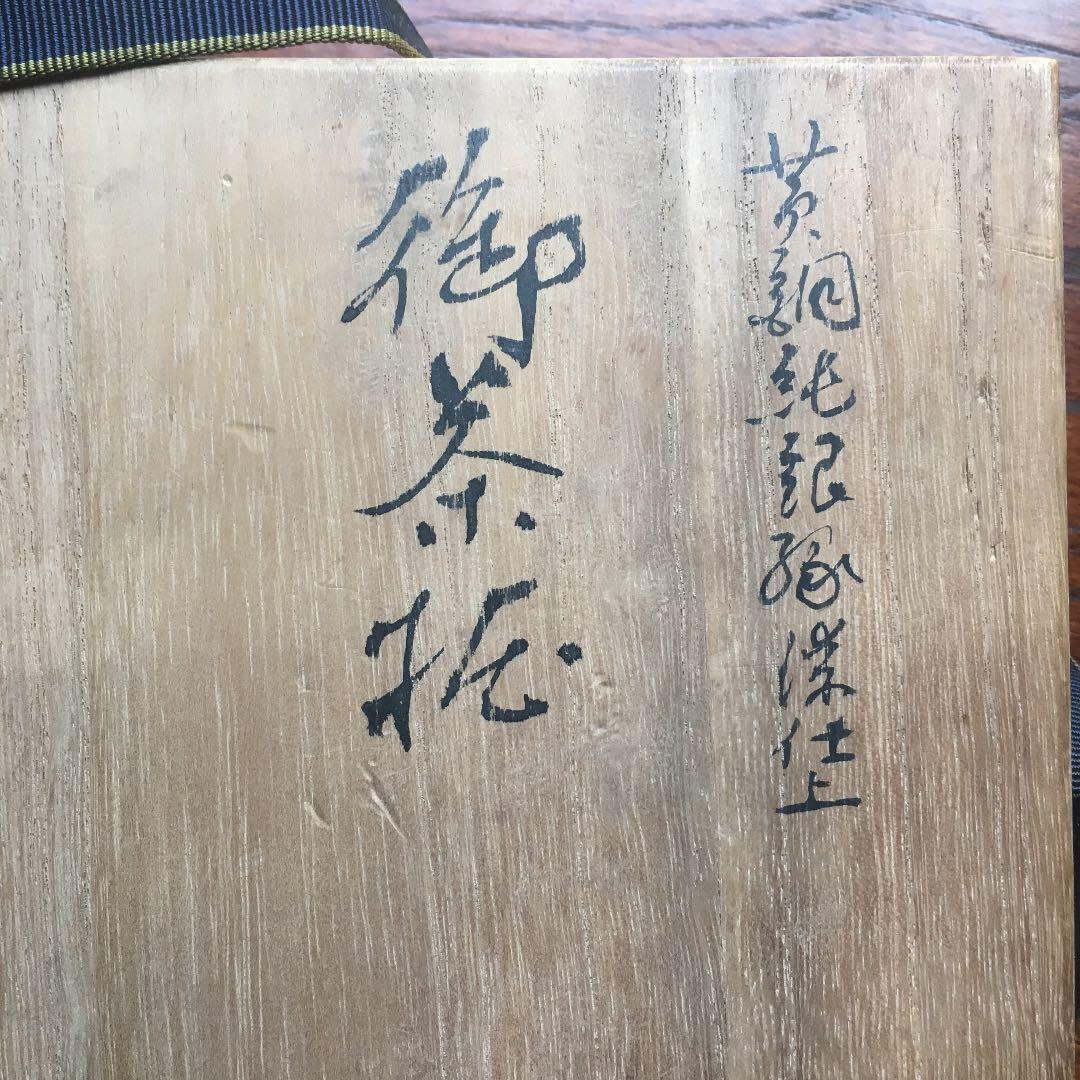 黄銅純銀縁漆仕上
御茶托